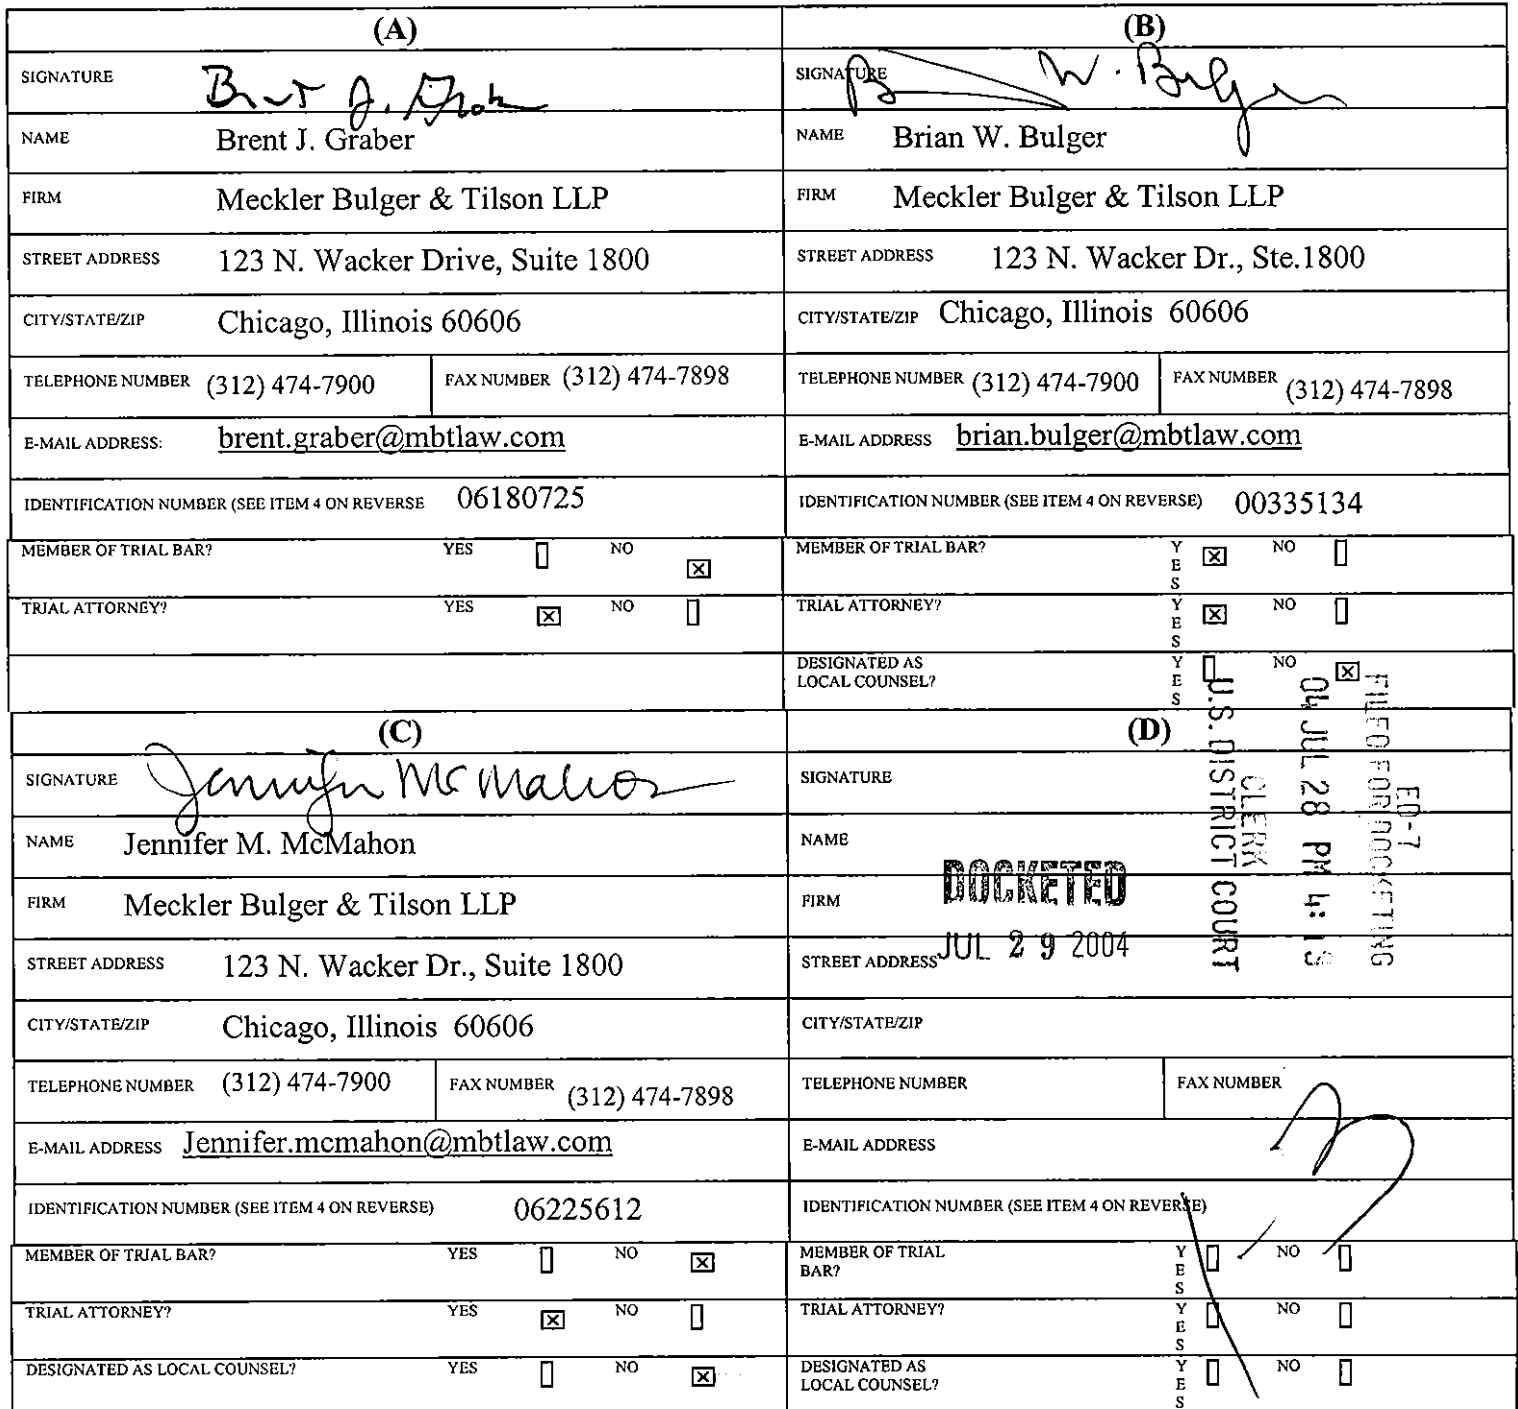 (A)
SIGNATURE Brent J. Grab
NAME Brent J. Graber
FIRM Meckler Bulger & Tilson LLP
STREET ADDRESS 123 N. Wacker Drive, Suite 1800
CITY/STATE/ZIP Chicago, Illinois 60606
TELEPHONE NUMBER (312) 474-7900 FAX NUMBER (312) 474-7898
E-MAIL ADDRESS: brent.graber@mbtlaw.com
IDENTIFICATION NUMBER (SEE ITEM 4 ON REVERSE 06180725
MEMBER OF TRIAL BAR? YES NO ☒
TRIAL ATTORNEY? YES ☒ NO
(B)
SIGNATURE B W. Bulger
NAME Brian W. Bulger
FIRM Meckler Bulger & Tilson LLP
STREET ADDRESS 123 N. Wacker Dr., Ste.1800
CITY/STATE/ZIP Chicago, Illinois 60606
TELEPHONE NUMBER (312) 474-7900 FAX NUMBER (312) 474-7898
E-MAIL ADDRESS brian.bulger@mbtlaw.com
IDENTIFICATION NUMBER (SEE ITEM 4 ON REVERSE) 00335134
MEMBER OF TRIAL BAR? YES ☒ NO
TRIAL ATTORNEY? YES ☒ NO
DESIGNATED AS
LOCAL COUNSEL? YES NO ☒
(C)
SIGNATURE Jennifer McMahon
NAME Jennifer M. McMahon
FIRM Meckler Bulger & Tilson LLP
STREET ADDRESS 123 N. Wacker Dr., Suite 1800
CITY/STATE/ZIP Chicago, Illinois 60606
TELEPHONE NUMBER (312) 474-7900 FAX NUMBER (312) 474-7898
E-MAIL ADDRESS Jennifer.mcmahon@mbtlaw.com
IDENTIFICATION NUMBER (SEE ITEM 4 ON REVERSE) 06225612
MEMBER OF TRIAL BAR? YES NO ☒
TRIAL ATTORNEY? YES ☒ NO
DESIGNATED AS LOCAL COUNSEL? YES NO ☒
(D)
SIGNATURE
NAME
FIRM
STREET ADDRESS
CITY/STATE/ZIP
TELEPHONE NUMBER FAX NUMBER
E-MAIL ADDRESS
IDENTIFICATION NUMBER (SEE ITEM 4 ON REVERSE)
MEMBER OF TRIAL
BAR? YES NO
TRIAL ATTORNEY? YES NO
DESIGNATED AS
LOCAL COUNSEL? YES NO
DOCKETED
JUL 29 2004
FILED FOR DOCKETING
ED-7
04 JUL 28 PM
CLERK
U.S. DISTRICT COURT